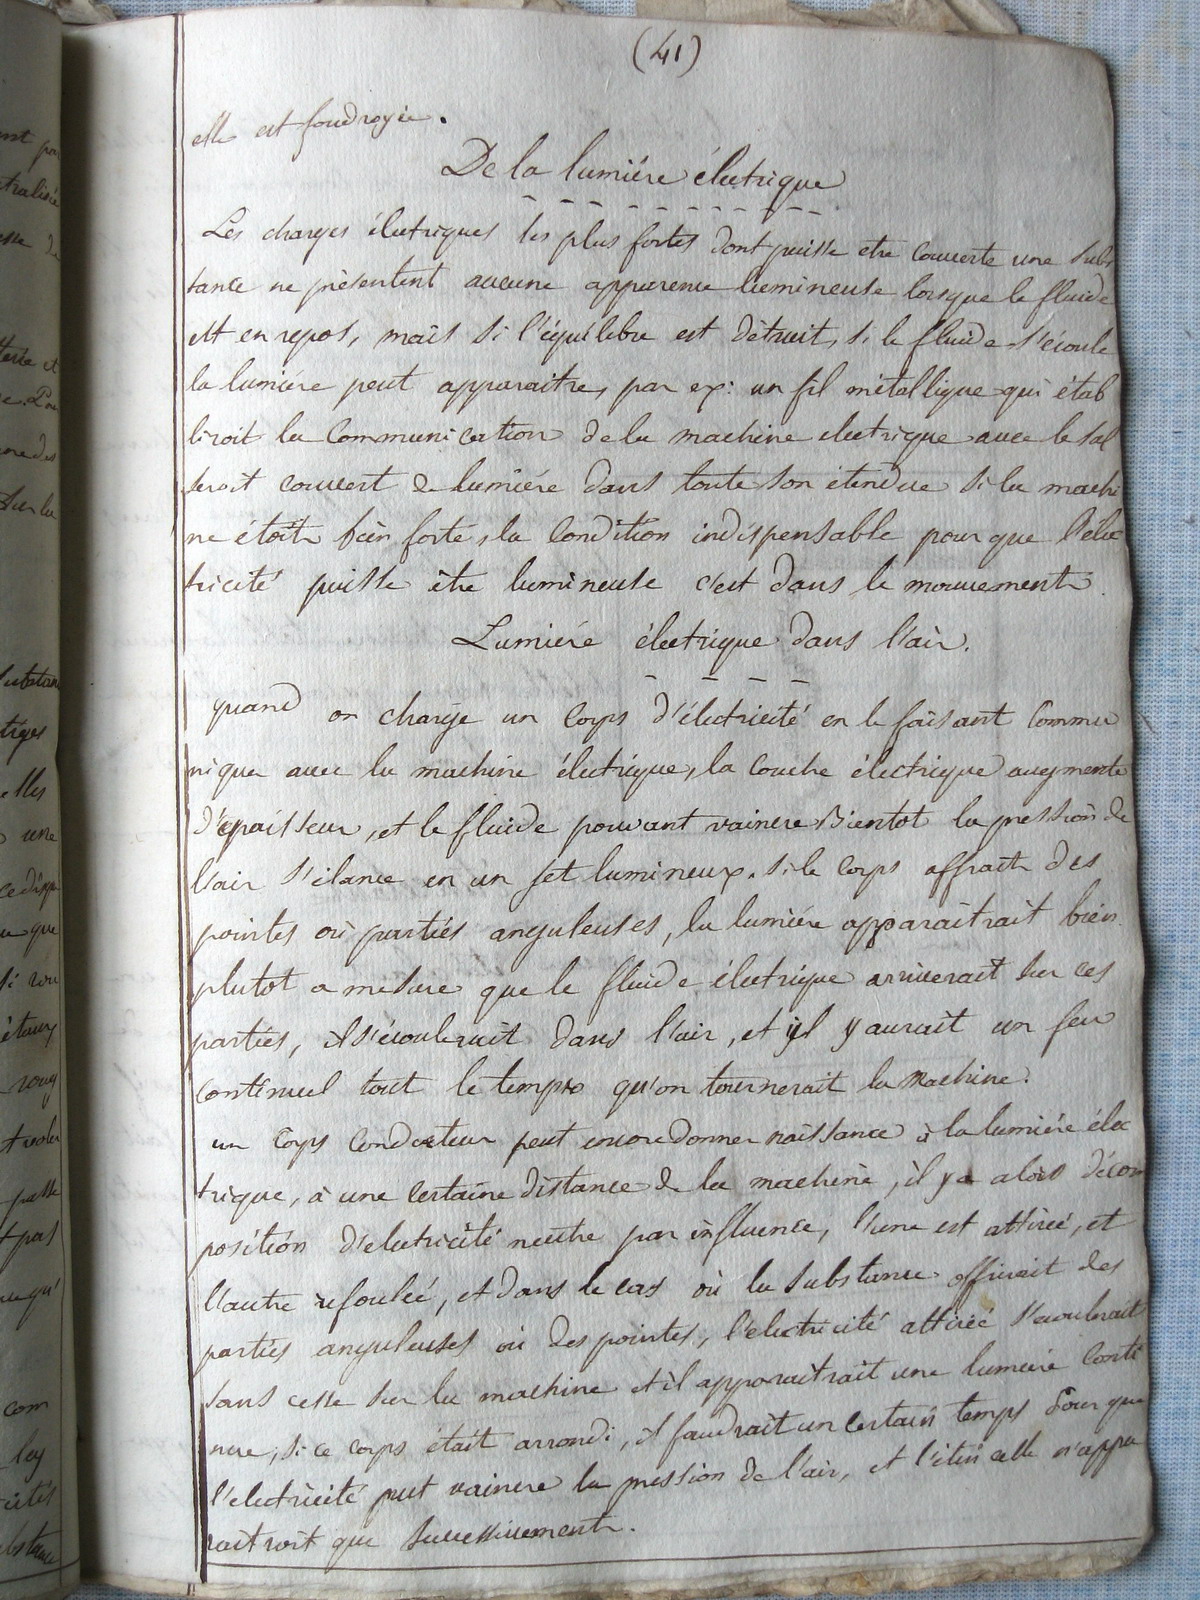 (41)
elle est foudroyée.
De la lumiére électrique
Les charges électriques les plus fortes dont puisse etre couverte une subs
tance ne présentent aucune apparence lumineuse lorsque le fluide
est en repos, mais si l'équilibre est détruit, si le fluide s'écoule
la lumiére peut apparaitre, par ex: un fil métallique qui étab
liroit la Communication de la machine electrique avec le sol
seroit couvert de lumiére dans toute son étendue si la machi
ne étoit bien forte, la Condition indispensable pour que l'élec
tricité puisse être lumineuse c'est dans le mouvement.
Lumiére électrique dans l'air.
quand on charge un Corps d'électricité en le faisant Commu
niquer avec la machine électrique, la couche électrique augmente
d'épaisseur, et le fluide pouvant vaincre Bientot la pression de
l'air s'élance en un jet lumineux. si le corps offrait des
pointes ou parties anguleuses, la lumiére apparaitrait bien
plutot a mesure que le fluide électrique arriverait sur ces
parties, il s'écoulerait dans l'air, et il y aurait un feu
continuel tout le temps qu'on tournerait la Machine.
un Corps Conducteur peut encore donner naissance à la lumiére élec
trique, à une certaine distance de la machine, il y a alors décom
position d'electricité neutre par influence, l'une est attirée, et
l'autre refoulée, et dans le cas où la substance offrirait des
parties anguleuses ou des pointes, l'electricité attirée s'écoulerait
sans cesse sur la machine et il apparaitrait une lumiére Conti
nue, si ce corps était arrondi, il faudrait un certain temps Pour que
l'electricité put vaincre la pression de l'air, et l'étincelle n'appa
raitroit que successivement.